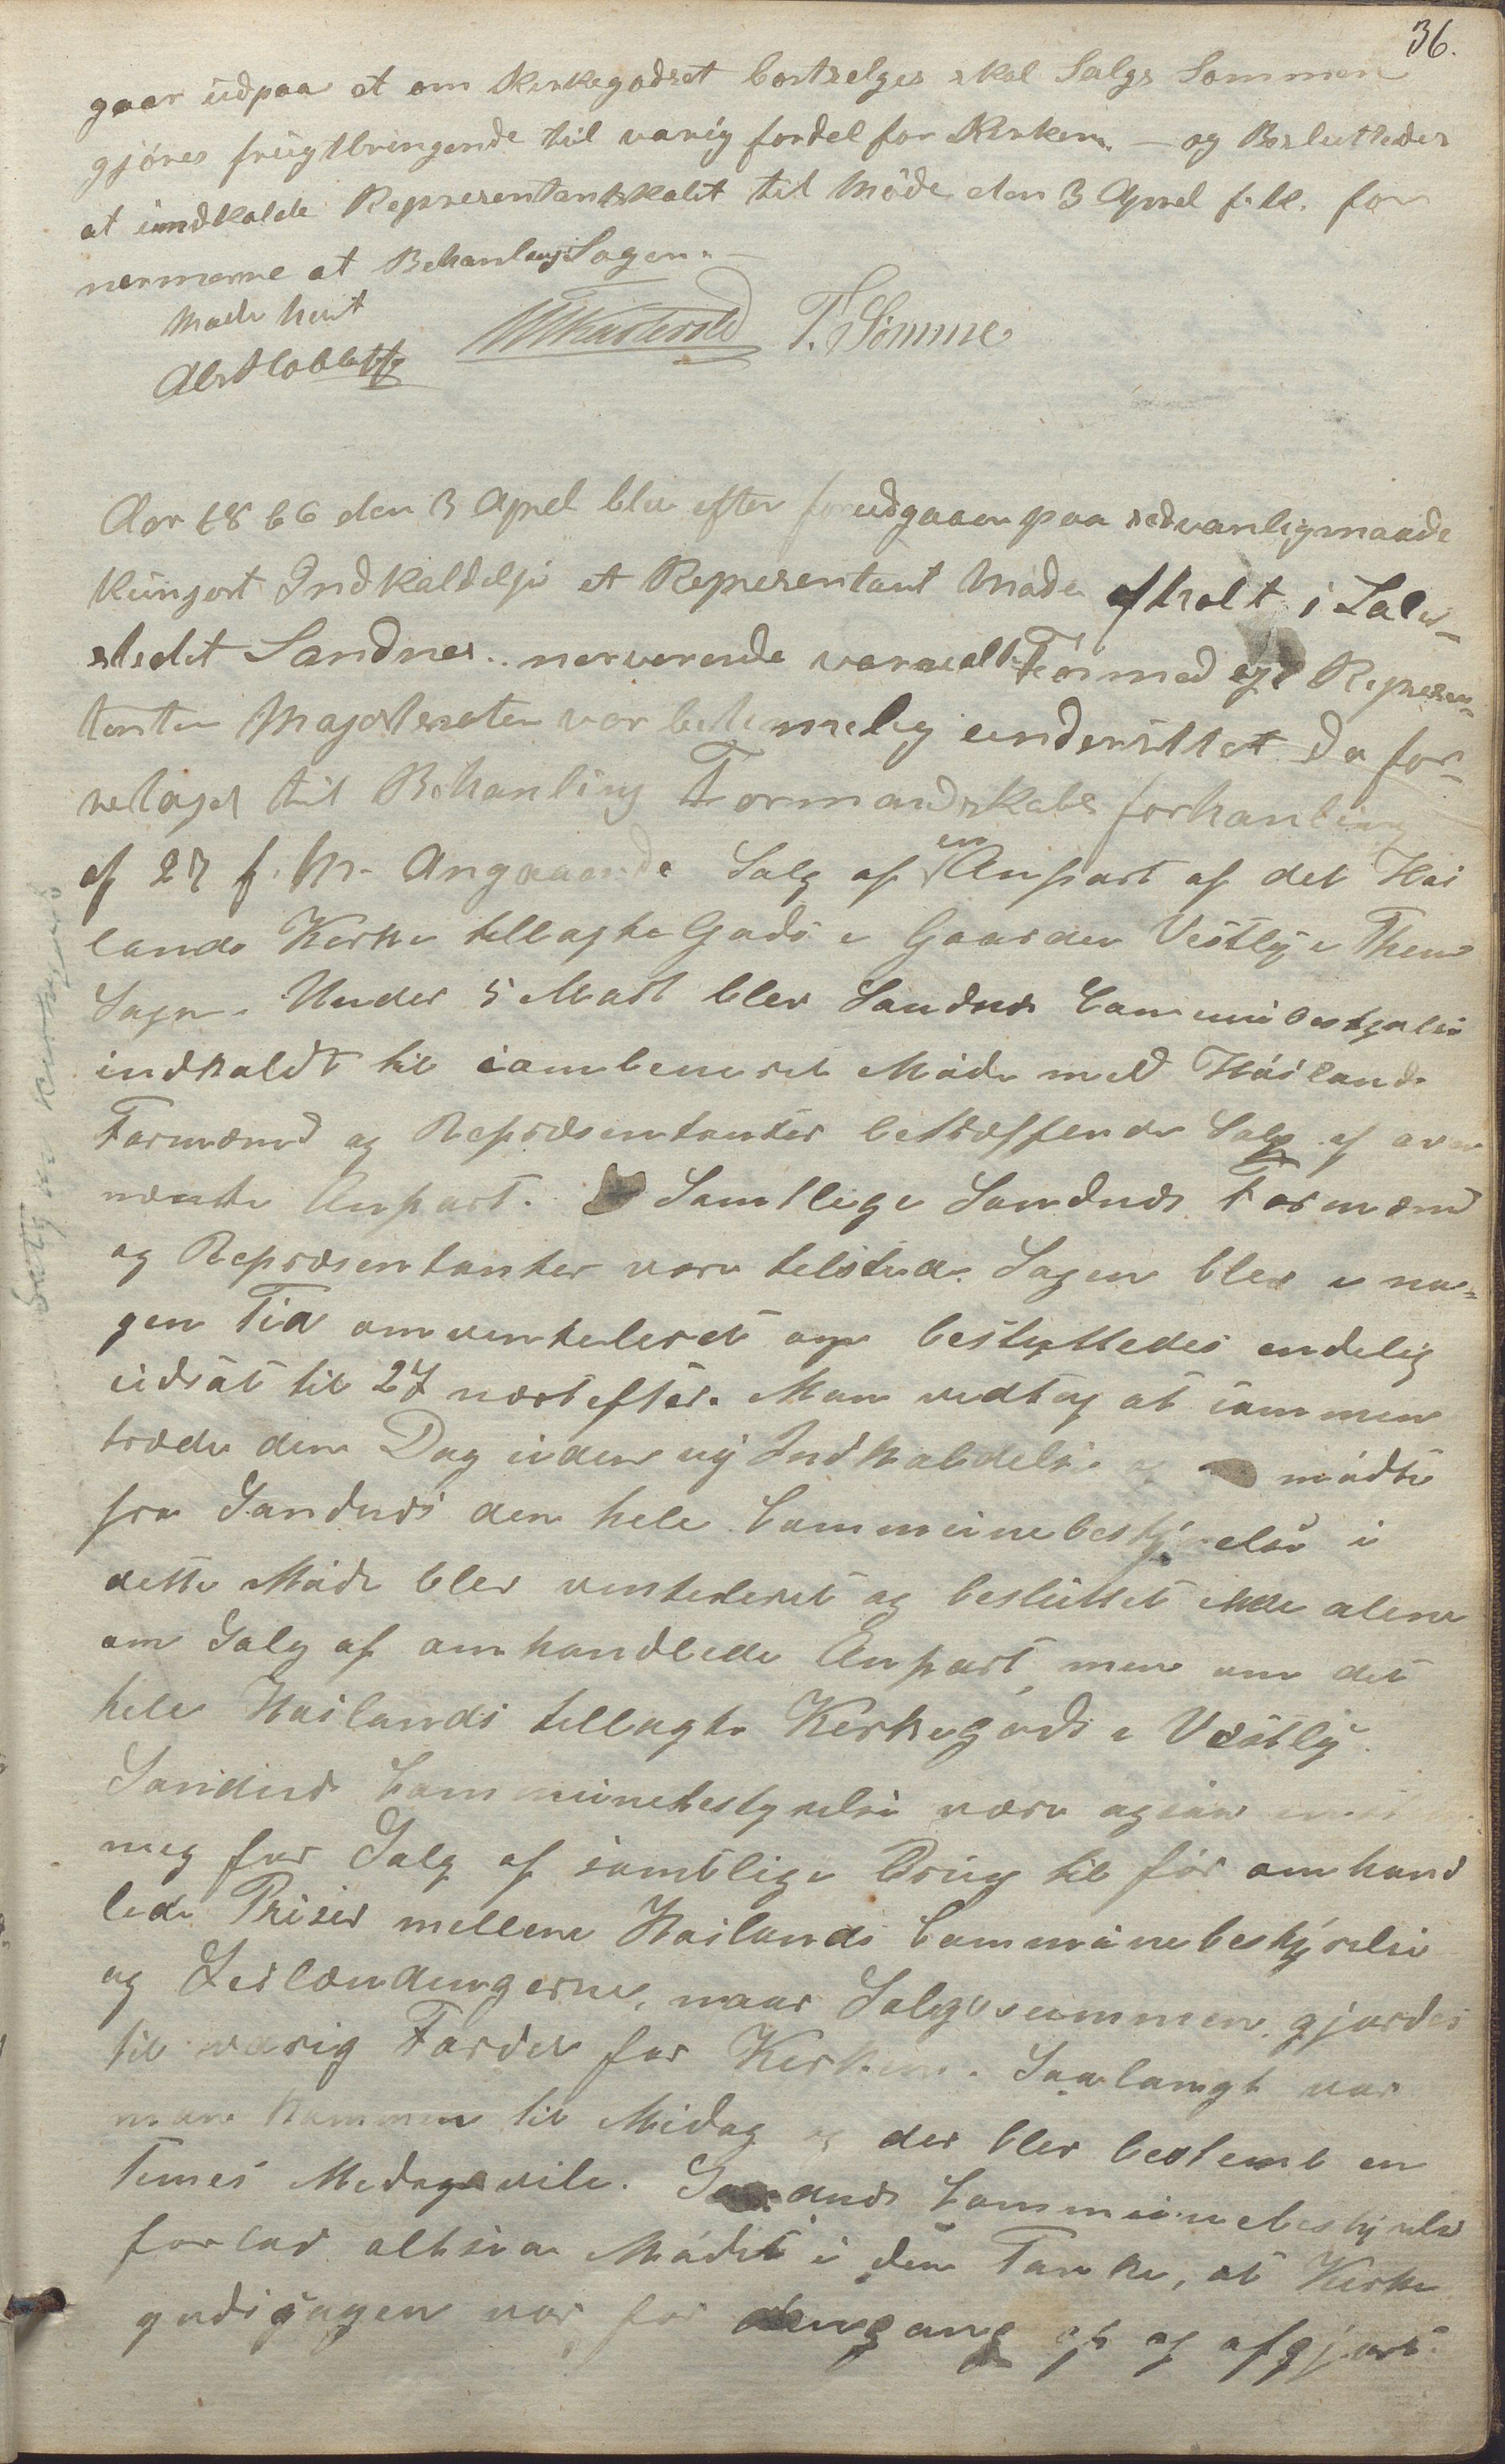 36.
gaar udpaa at om Kirkegodset bortselges skal Salgs Sommen
gjöres frugtbringende til varig fordel for Kirken. — og Besluttedes
at inndkalde Representantskabet til Möde den 3 April f. M. for
nermerne at Behanlays Sagen. —
Made hevit
T. Sömme
Aar 1866 den 3 April blev efter forudgaaen paa sedvanligmaade
kungjort Indkaldelse et Representant Möde afholt i Lade-
stedet Sandnes.. nerverende var Formend og Represen-
tanter Majoteraten var bestemmelig underrettet da for-
netoges til Behanling Formandskabs forhanling
af 27 f. M. Angaaende Salg af en Anpart af det Höi
lands Kirke tillagte Gods i Gaarden Vestly i Thims
Sogn. Under 5 Mart blev Sandnes Communebestyrelse
indkaldt til combeneret Möde med Höilands
Formænd og Repræsentanter betræffende Salg af oven
nævnte Anpart. Samtlige Sandnes Formænd
og Repræsentanter vare tilstede. Sagen blev i no-
gen Tid omventeleret og besluttedes endelig
udsat til 27 næstefter. Man vedtog at sammen
træde den Dag uden ny Indkaldelse og mödte
fra Sandnes den hele Communebestyrelse i
dette Möde blev ventileret og besluttet ikke alene
om Salg af omhandlede Anpart, men om det
hele Höilands tillagte Kirkegods i Vestly.
Sandnes Communebestyrelse være ogsaa
nig for Salg af samtlige Brug til för omhand
lede Priser mellem Höilands Communebestyrelse
og Leilændingerne, naar Salgssummen gjordes
til varig Fordel for Kirken. Saalangt var
man kommen til Midag og der blev bestemt en
Times Medagsvile. Sandnes Communebestyrelse
forlod altsaa Mödet i den Tanke, at Kirke
godssagen var for dengang op og afgjort.